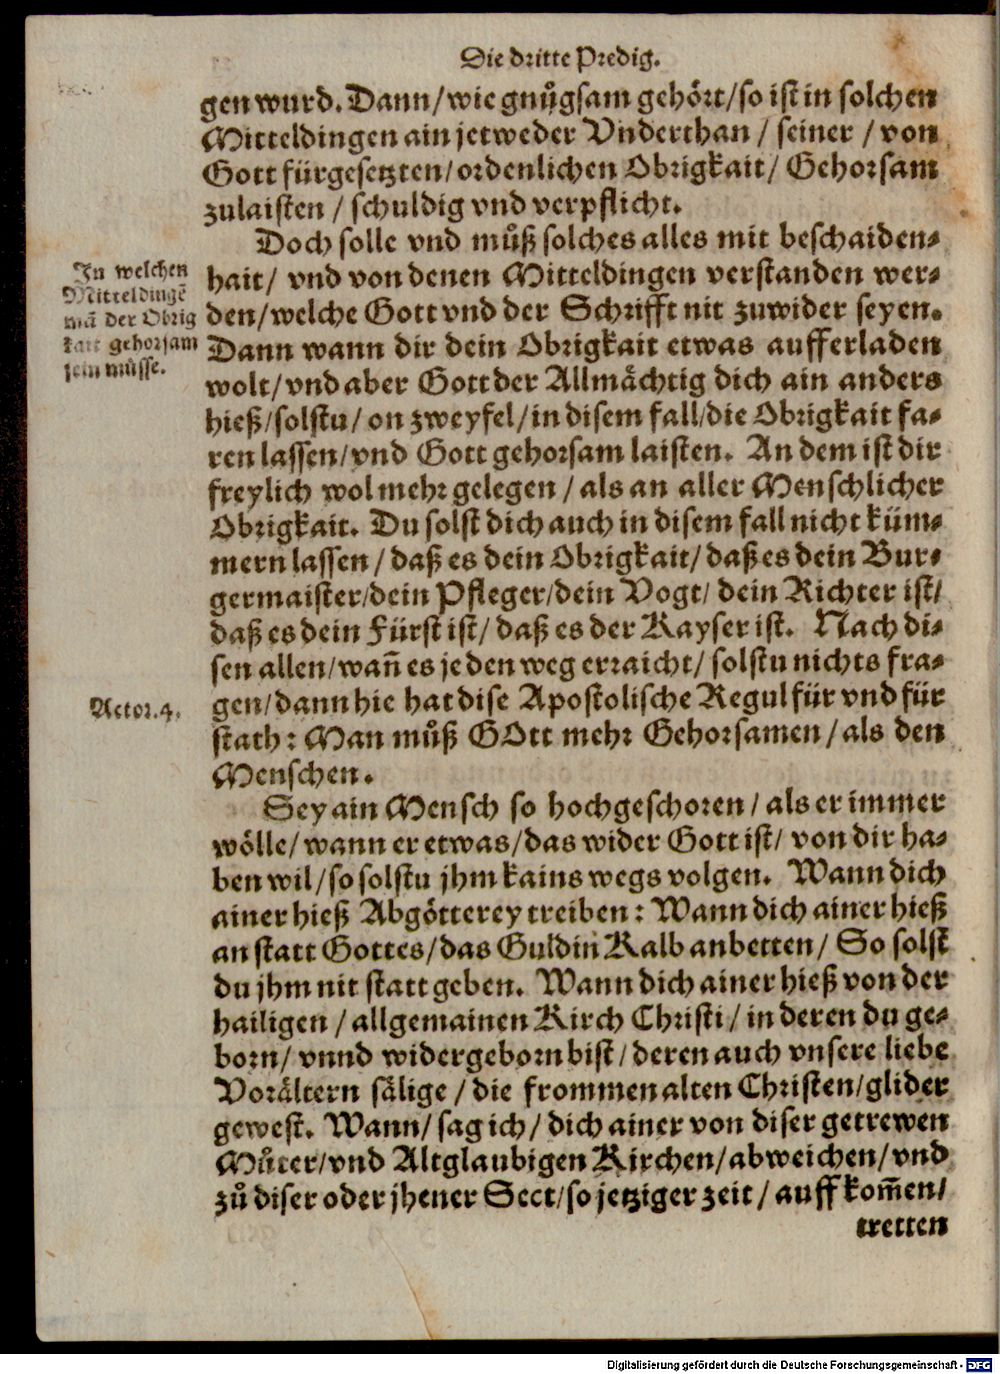 Die dritte Predig.
gen wurd. Dann/ wie gnůgsam gehört/ so ist in solchen
Mitteldingen ain jetweder Vnderthan / seiner / von
Gott fürgesetzten/ ordenlichen Obrigkait/ Gehorsam
zulaisten / schuldig vnd verpflicht.
Doch solle vnd můß solches alles mit beschaiden-
hait/ vnd von denen Mitteldingen verstanden wer-
den/ welche Gott vnd der Schrifft nit zuwider seyen.
Dann wann dir dein Obrigkait etwas aufferladen
wolt/ vnd aber Gott der Allmächtig dich ain anders
hieß/ solstu/ on zweyfel/ in disem fall/ die Obrigkait fa-
ren lassen/ vnd Gott gehorsam laisten. An dem ist dir
freylich wol mehr gelegen / als an aller Menschlicher
Obrigkait. Du solst dich auch in disem fall nicht küm-
mern lassen / daß es dein Obrigkait/ daß es dein Bur-
germaister/ dein Pfleger/ dein Vogt/ dein Richter ist/
daß es dein Fürst ist/ daß es der Kayser ist. Nach di-
sen allen/ wañ es je den weg erraicht/ solstu nichts fra-
gen/ dann hie hat dise Apostolische Regul für vnd für
stath: Man můß GOtt mehr Gehorsamen / als den
Menschen.
Sey ain Mensch so hochgeschoren / als er immer
wölle/ wann er etwas/ das wider Gott ist/ von dir ha-
ben wil/ so solstu jhm kains wegs volgen. Wann dich
ainer hieß Abgötterey treiben: Wann dich ainer hieß
an statt Gottes/ das Guldin Kalb anbetten/ So solst
du jhm nit statt geben. Wann dich ainer hieß von der
hailigen / allgemainen Kirch Christi / in deren du ge-
born/ vnnd widergeborn bist / deren auch vnsere liebe
Vorältern sälige / die frommen alten Christen/ glider
gewest. Wann/ sag ich/ dich ainer von diser getrewen
Můter/ vnd Altglaubigen Kirchen/ abweichen/ vnd
zů diser oder jhener Sect/ so jetziger zeit / auff kom̃en/
tretten
In welchen
Mitteldingẽ
mã der Obrig
kait gehorsam
sein müsse.
Actor. 4.
Digitalisierung gefördert durch die Deutsche Forschungsgemeinschaft - DFG